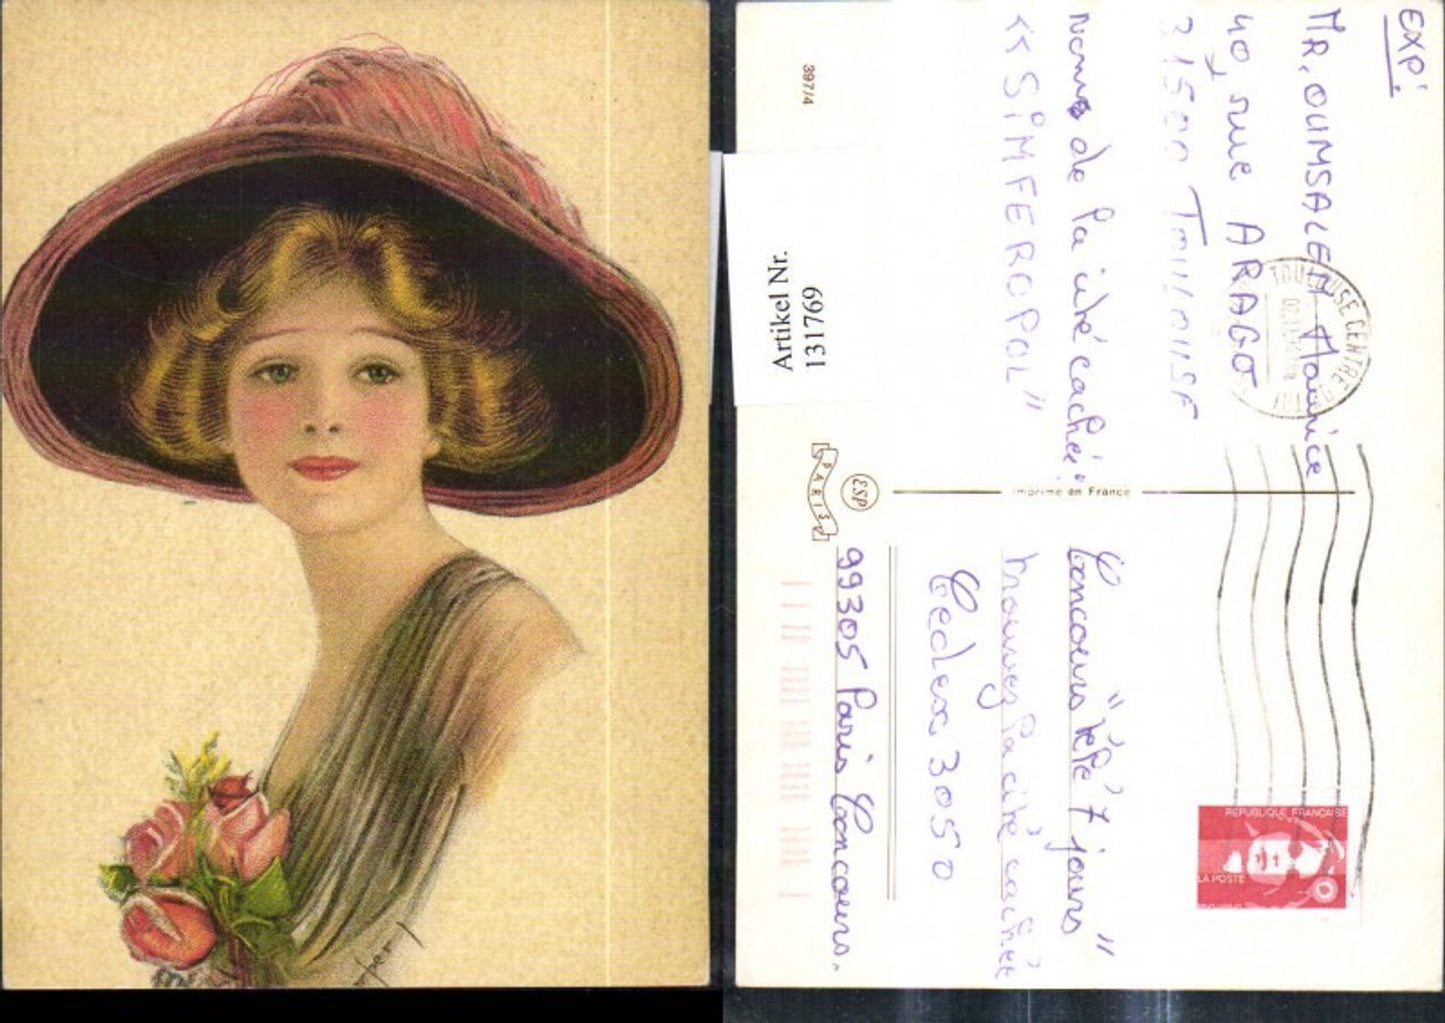 EXP:
MR. OUMSALEM Maurice
40, rue ARAGO
31500 TOULOUSE
Noms de la cité cachée:
"SIMFEROPOL"
TOULOUSE CENTRE
Imprimé en France
Concours "Télé 7 jours"
trouvez la cité cachée
Cedex 3050
99305 Paris Concours.
REPUBLIQUE FRANCAISE
LA POSTE
PARIS
ESP
397/4
Artikel Nr.
131769